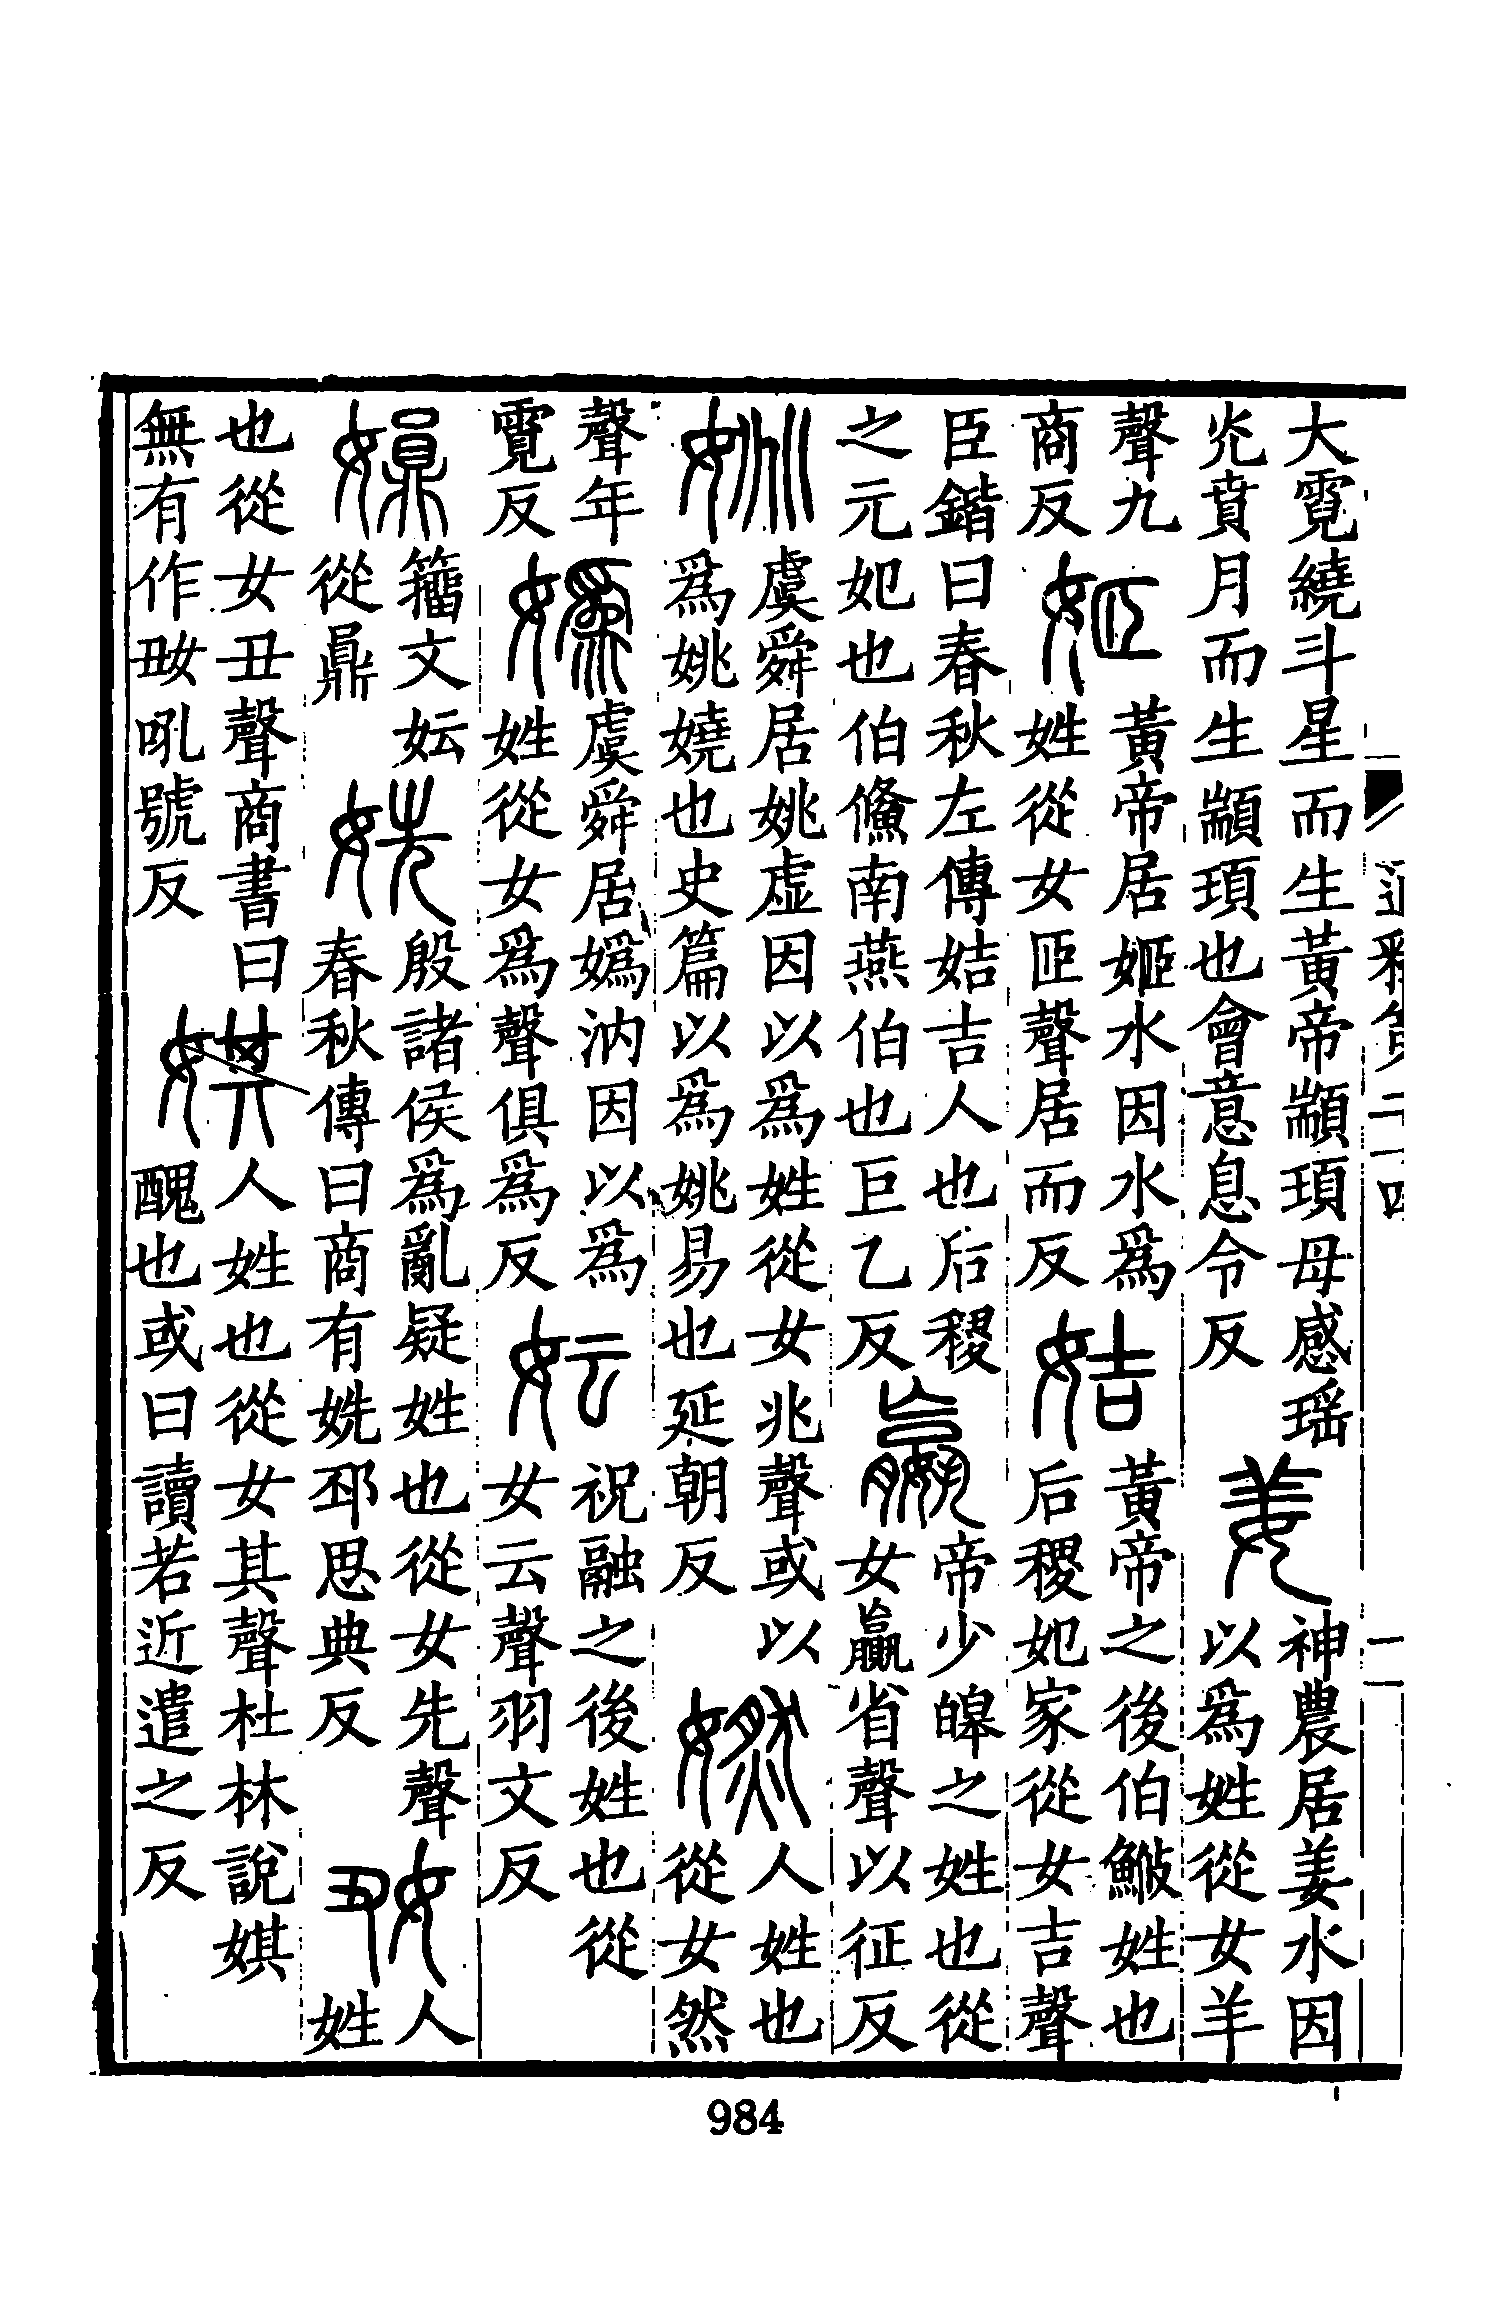 大霓繞斗星而生黃帝顓頊母感瑤
光賁月而生顓頊也會意息令反
姜
神農居姜水因
以爲姓從女羊
聲九
商反
姬
黃帝居姬水因水爲
姓從女𦣝聲居而反
姞
黃帝之後伯鮅姓也
后稷妃家從女吉聲
臣鍇曰春秋左傳姞吉人也后稷
之元妃也伯儵南燕伯也巨乙反
嬴
帝少皞之姓也從
女羸省聲以征反
姚
虞舜居姚虛因以爲姓從女兆聲或以
爲姚嬈也史篇以爲姚易也延朝反
㜣
人姓也
從女然
聲年
霓反
嬀
虞舜居嬀汭因以爲
姓從女爲聲俱爲反
妘
祝融之後姓也從
女云聲羽文反
籀文妘
從鼎
姺
殷諸侯爲亂疑姓也從女先聲
春秋傳曰商有姺邳思典反
𡚽
人
姓
也從女丑聲商書曰
無有作𡚽吼號反
娸
人姓也從女其聲杜林說娸
醜也或曰讀若近遣之反
通釋第二十四
一
984